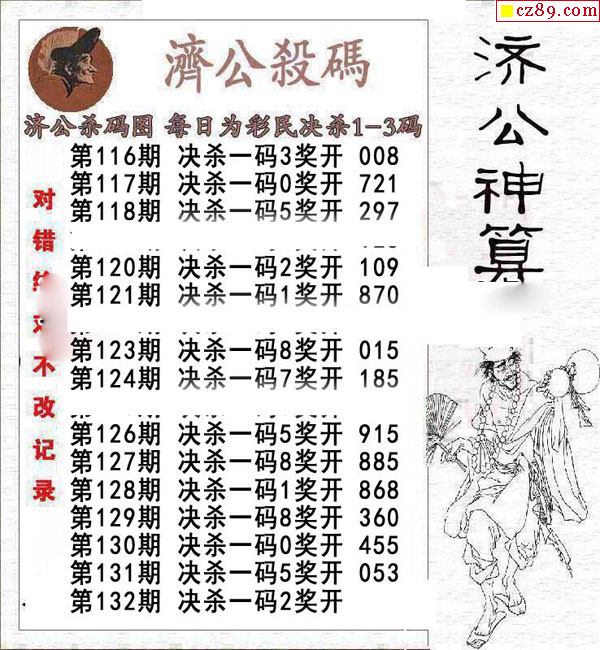 cz89.com
濟公殺碼
济公杀码图 每日为彩民决杀1-3码
第116期 决杀一码3奖开 008
第117期 决杀一码0奖开 721
第118期 决杀一码5奖开 297
第120期 决杀一码2奖开 109
第121期 决杀一码1奖开 870
第123期 决杀一码8奖开 015
第124期 决杀一码7奖开 185
第126期 决杀一码5奖开 915
第127期 决杀一码8奖开 885
第128期 决杀一码1奖开 868
第129期 决杀一码8奖开 360
第130期 决杀一码0奖开 455
第131期 决杀一码5奖开 053
第132期 决杀一码2奖开
对错
不改记录
济公神算